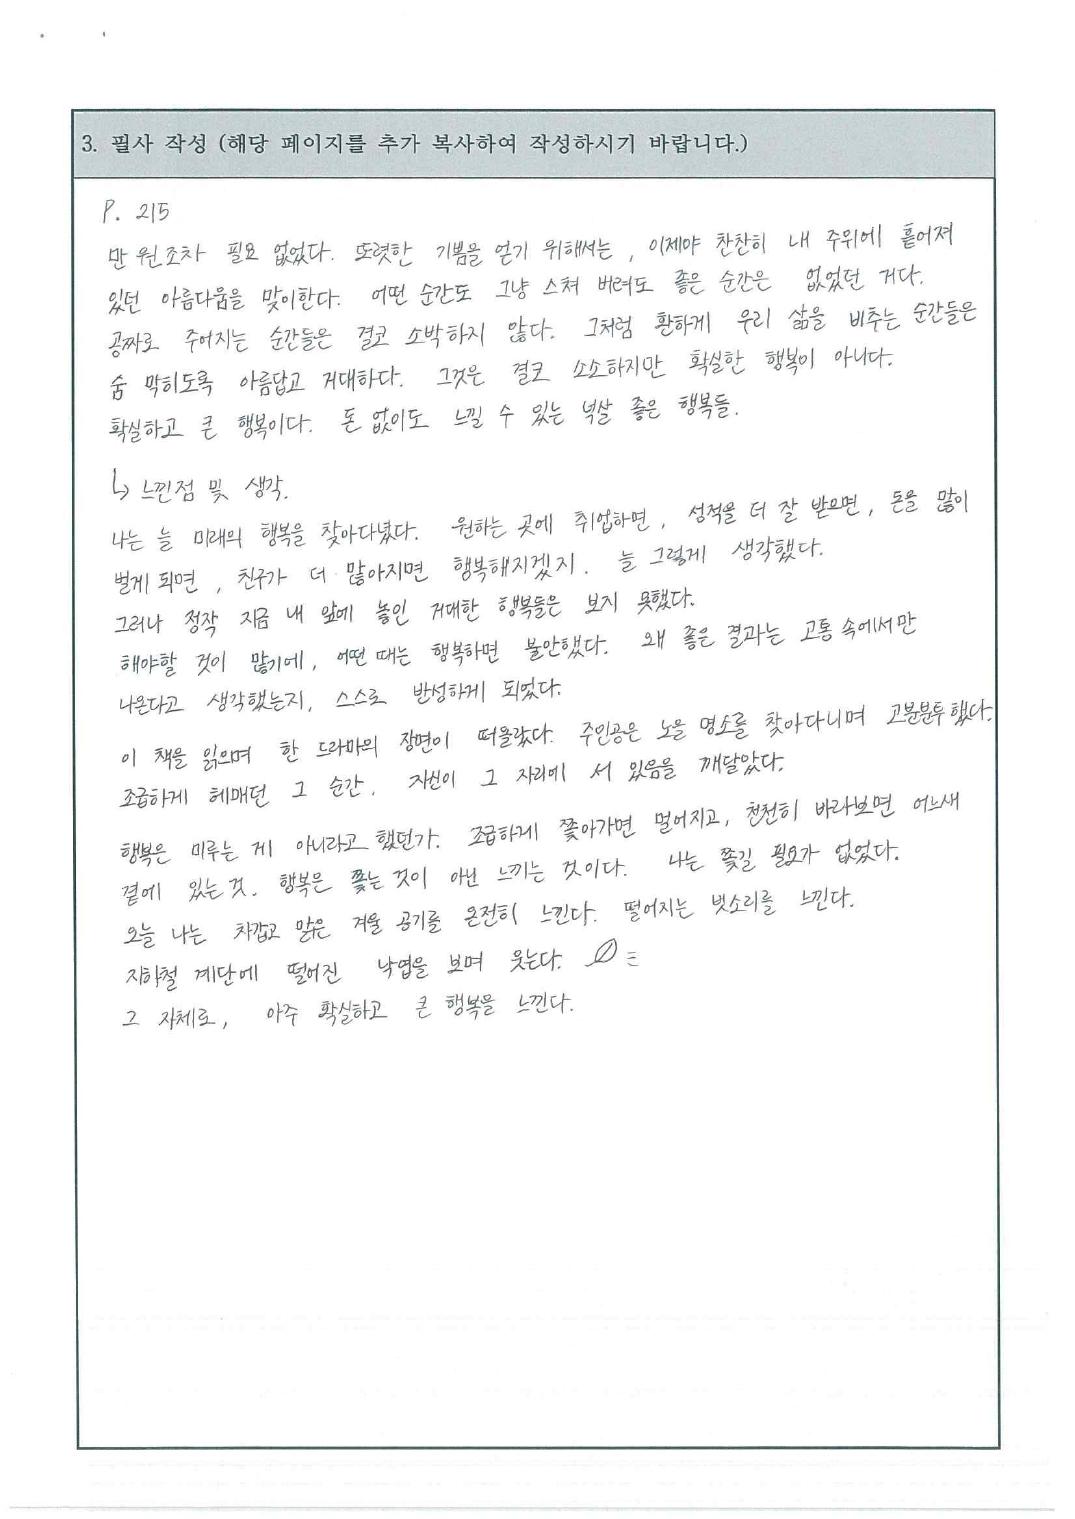 3. 필사 작성 (해당 페이지를 추가 복사하여 작성하시기 바랍니다.)
P. 215
만 원조차 필요 없었다. 또렷한 기쁨을 얻기 위해서는, 이제야 찬찬히 내 주위에 흩어져
있던 아름다움을 맞이한다. 어떤 순간도 그냥 스쳐 버려도 좋은 순간은 없었던 거다.
공짜로 주어지는 순간들은 결코 소박하지 않다. 그처럼 환하게 우리 삶을 비추는 순간들은
숨 막히도록 아름답고 거대하다. 그것은 결코 소소하지만 확실한 행복이 아니다.
확실하고 큰 행복이다. 돈 없이도 느낄 수 있는 넉살 좋은 행복들.
↳ 느낀점 및 생각.
나는 늘 미래의 행복을 찾아다녔다. 원하는 곳에 취업하면, 성적을 더 잘 받으면, 돈을 많이
벌게 되면, 친구가 더 많아지면 행복해지겠지. 늘 그렇게 생각했다.
그러나 정작 지금 내 앞에 놓인 거대한 행복들은 보지 못했다.
해야할 것이 많기에, 어떤 때는 행복하면 불안했다. 왜 좋은 결과는 고통 속에서만
나온다고 생각했는지, 스스로 반성하게 되었다.
이 책을 읽으며 한 드라마의 장면이 떠올랐다. 주인공은 노을 명소를 찾아다니며 고분분투했다.
조급하게 헤매던 그 순간, 자신이 그 자리에 서 있음을 깨달았다.
행복은 미루는 게 아니라고 했던가. 조급하게 쫓아가면 멀어지고, 천천히 바라보면 어느새
곁에 있는 것. 행복은 쫓는 것이 아닌 느끼는 것이다. 나는 쫓길 필요가 없었다.
오늘 나는 차갑고 맑은 겨울 공기를 온전히 느낀다. 떨어지는 빗소리를 느낀다.
지하철 계단에 떨어진 낙엽을 보며 웃는다.
그 자체로, 아주 확실하고 큰 행복을 느낀다.